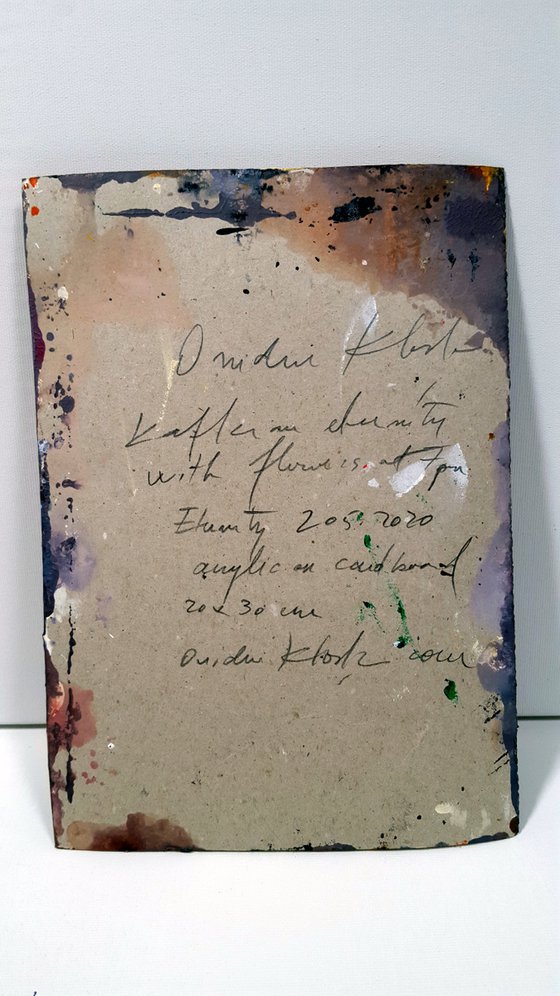 Ovidiu Kloska
Kafka on eternity
with flowers at 7pm
Eternity 205. 2020
acrylic on cardboard
20 x 30 cm
Ovidiu Kloska com